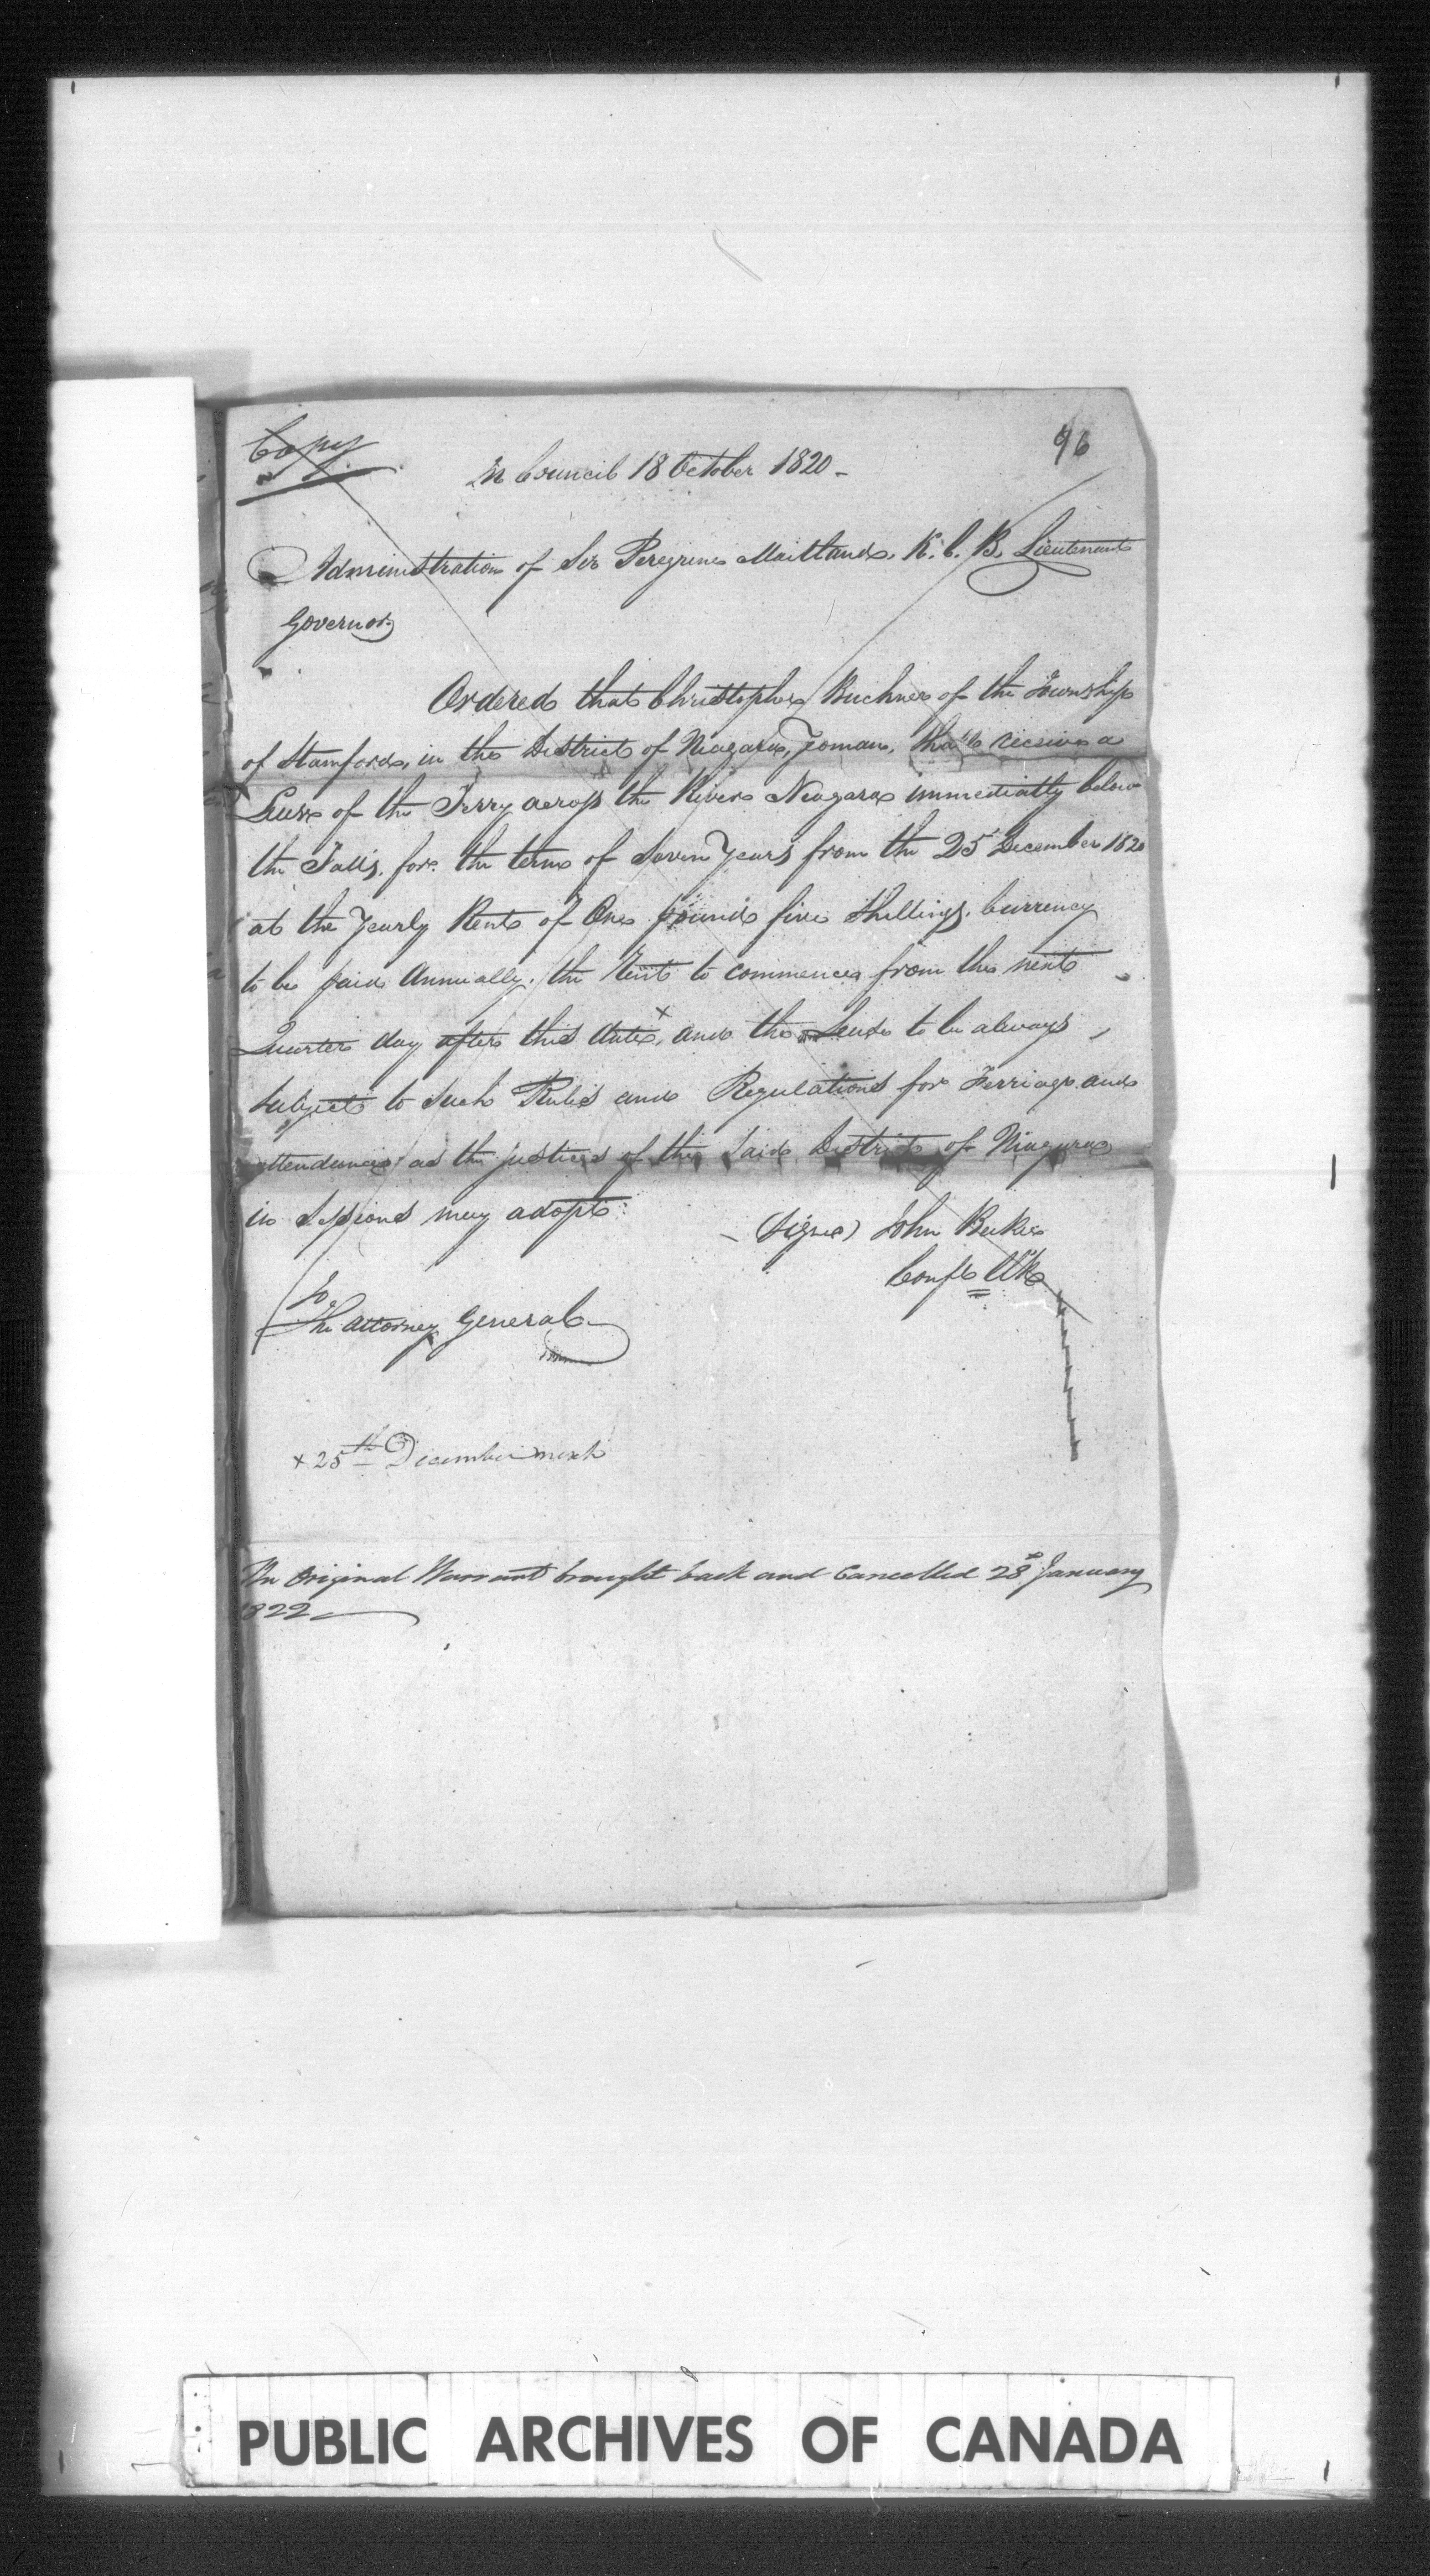 Copy
96
In Council 18 October 1820 -
Administration of Sir Peregrine Maitland, K. C. B. Lieutenant
Governor
Ordered that Christopher Buchner of the Township
of Stamford, in the District of Niagara, Yeoman, shall receive a
Lease of the Ferry across the River Niagara immediatly below
the Falls, for the term of Seven Years from the 25 December 1820
at the Yearly Rent of One pound five Shillings Currency
to be paid Annually, the Rent to commence from the next
Quarter day after this date x, and the Lease to be always
subject to such Rules and Regulations for Ferriage and
attendance as the justices of the said District of Niagara
in Sessions may adopt.
(Signed) John Beikie
To
The Attorney General
x 25th December next
The Original Warrant brought back and Cancelled 28 January
1822
PUBLIC ARCHIVES OF CANADA